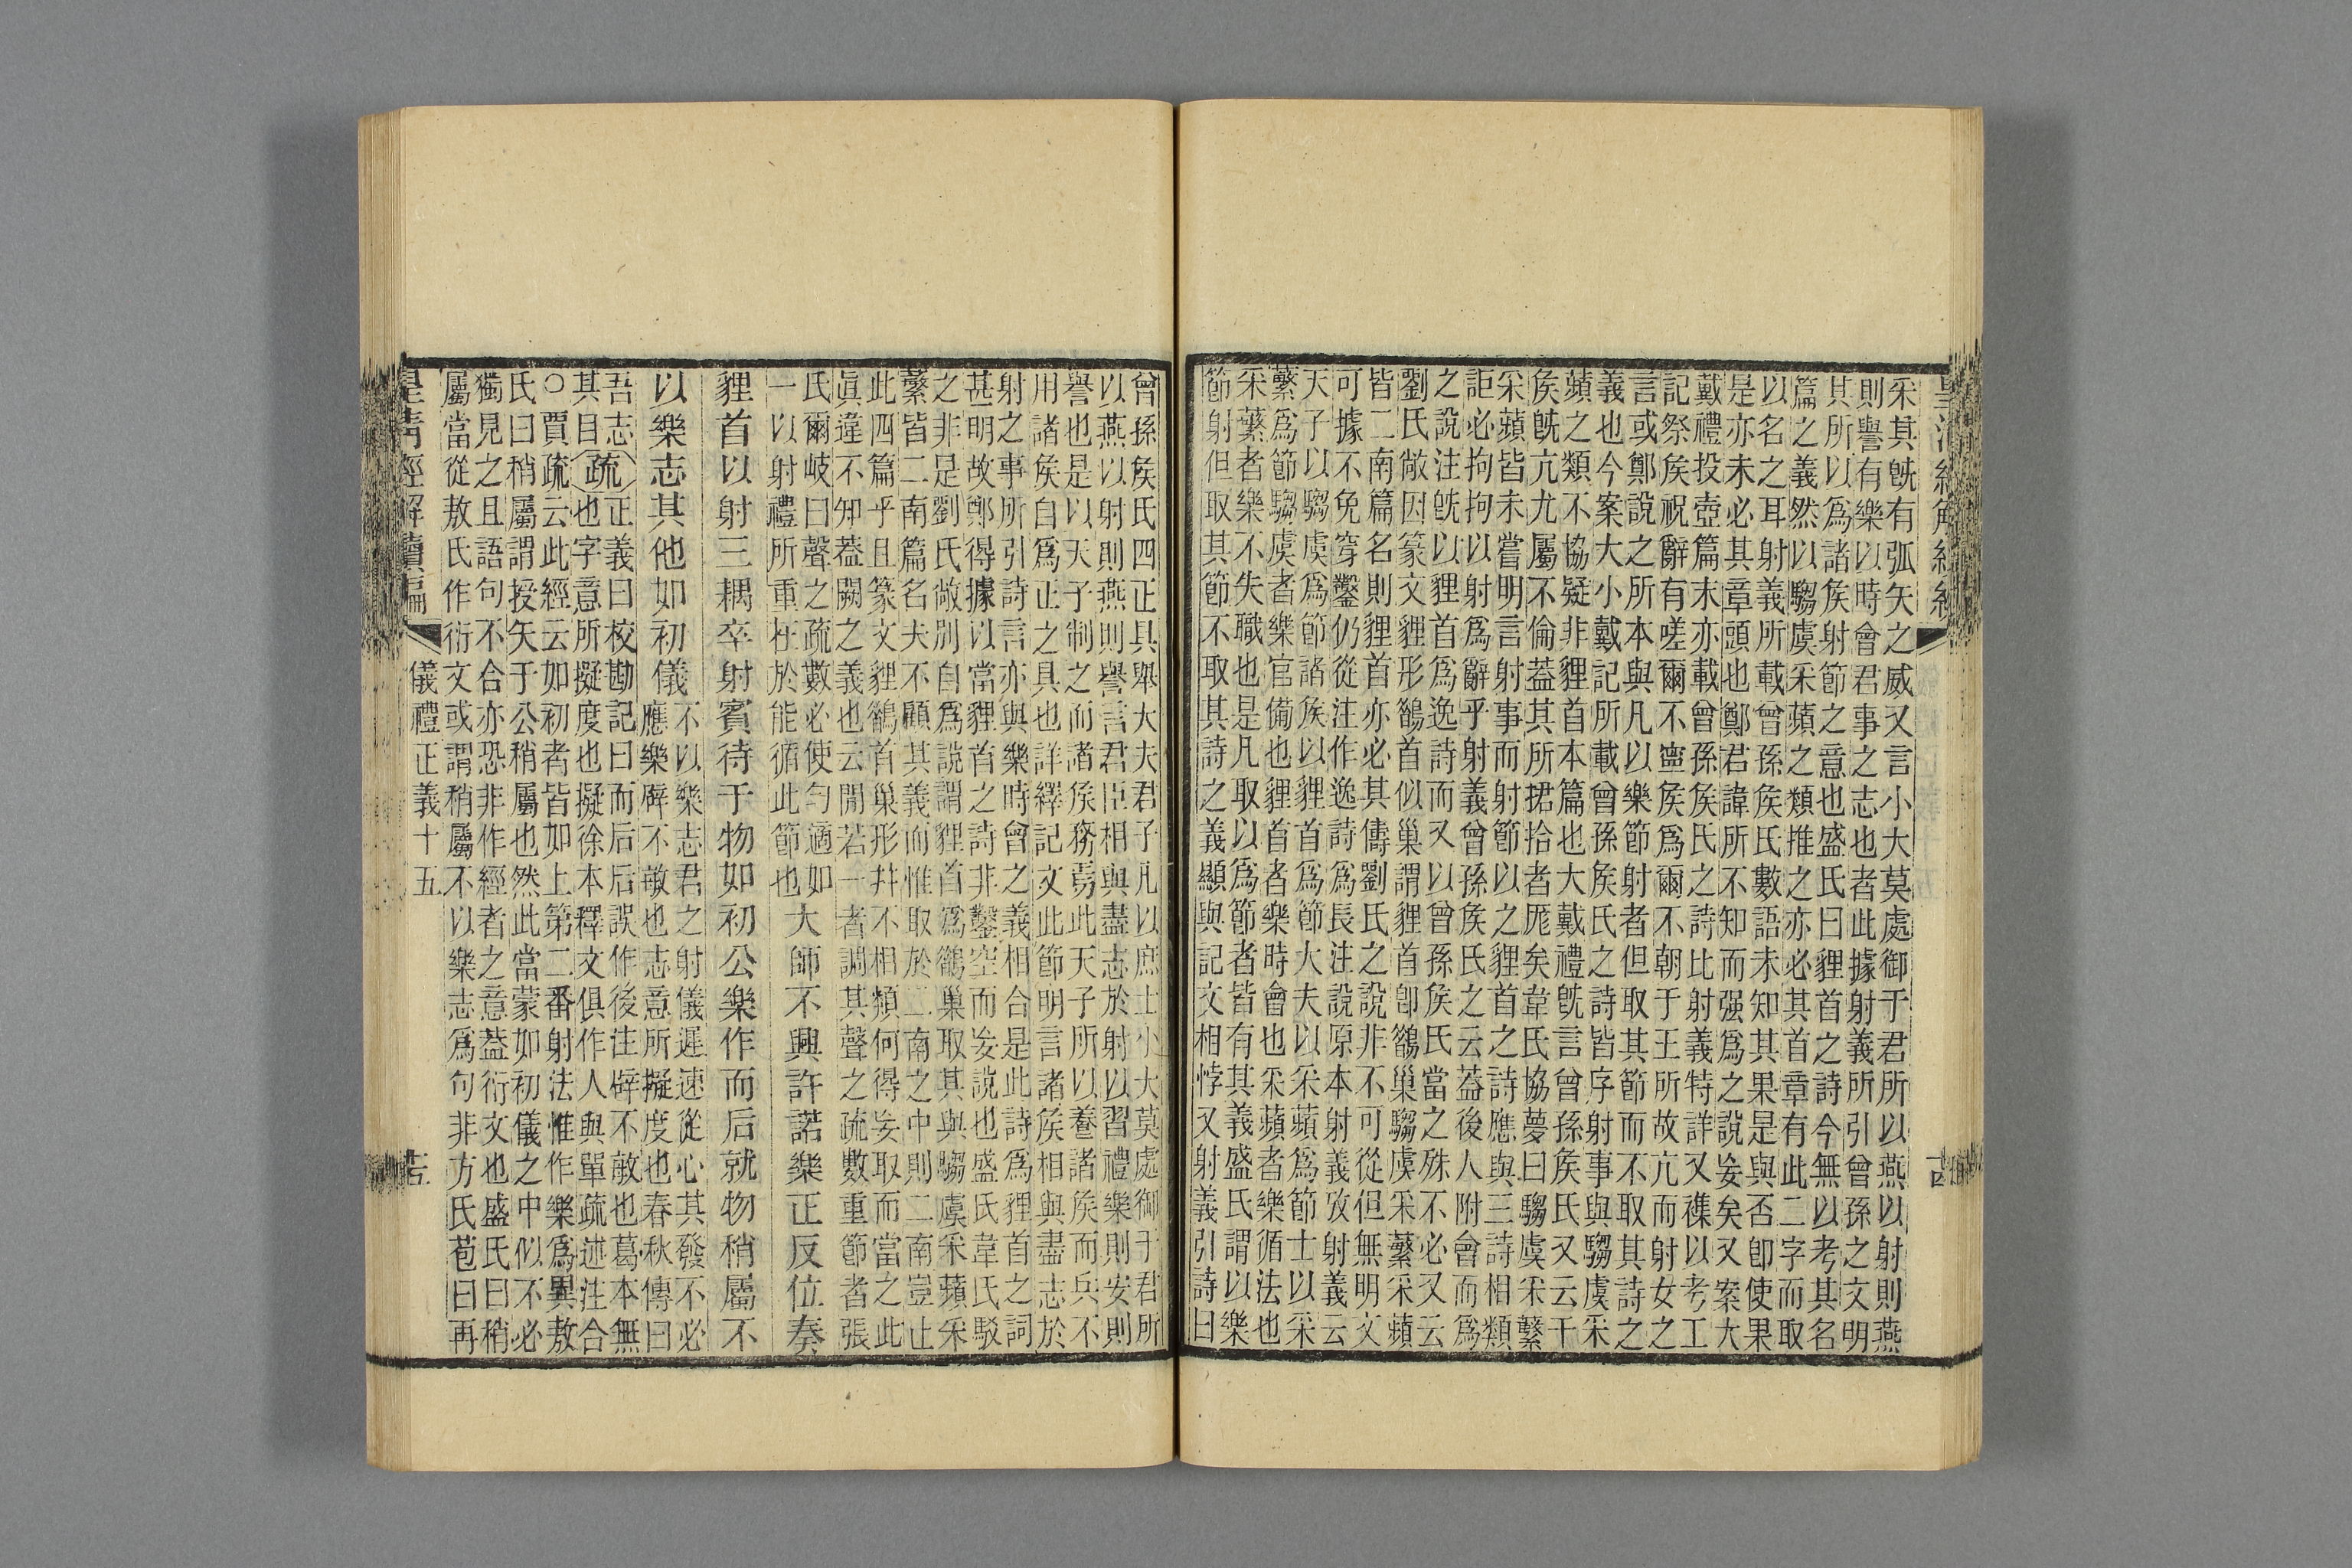 皇清經解續編
采其旣有弧矢之威又言小大莫處御于君所以燕以射則燕
則譽有樂以時會君事之志也者此據射義所引曾孫之文明
其所以爲諸矦射節之意也盛氏曰貍首之詩今無以考其名
篇之義然以騶虞采蘋之類推之亦必其首章有此二字而取
以名之耳射義所載曾孫矦氏數語未知其果是與否卽使果
是亦未必其章頭也鄭君諱所不知而强爲之說妄矣又案大
戴禮投壺篇末亦載曾孫矦氏之詩比射義特詳又襍以考工
記祭矦祝辭有嗟爾不寧矦爲爾不朝于王所故亢而射女之
言或鄭說之所本與凡以樂節射者但取其節而不取其詩之
義也今案大小戴記所載曾孫矦氏之詩皆序射事與騶虞采
蘋之類不協疑非貍首本篇也大戴禮旣言曾孫矦氏又云干
矦旣亢尤屬不倫葢其所捃拾者厖矣韋氏協夢曰騶虞采蘩
采蘋皆未嘗明言射事而射節以之貍首之詩應與三詩相類
詎必拘拘以射爲辭乎射義曾孫矦氏之云葢後人附會而爲
之說注旣以貍首爲逸詩而又以曾孫矦氏當之殊不必又云
劉氏敞因篆文貍形鵒首似巢謂貍首卽鵒巢騶虞采蘩采蘋
皆二南篇名則貍首亦必其儔劉氏之說非不可從但無明文
可據不免穿鑿仍從注作逸詩爲長注說原本射義攷射義云
天子以騶虞爲節諸矦以貍首爲節大夫以采蘋爲節士以采
蘩爲節騶虞者樂官備也貍首者樂時會也采蘋者樂循法也
采蘩者樂不失職也是凡取以爲節者皆有其義盛氏謂以樂
節射但取其節不取其詩之義顯與記文相悖又射義引詩曰
曾孫矦氏四正具舉大夫君子凡以庶士小大莫處御于君所
以燕以射則燕則譽言君臣相與盡志於射以習禮樂則安則
譽也是以天子制之而諸矦務焉此天子所以養諸矦而兵不
用諸矦自爲正之具也詳繹記文此節明言諸矦相與盡志於
射之事所引詩言亦與樂時會之義相合是此詩爲貍首之詞
甚明故鄭得據以當貍首之詩非鑿空而妄說也盛氏韋氏駁
之非是劉氏敞別自爲說謂貍首爲鵒巢取其與騶虞采蘋采
蘩皆二南篇名夫不顧其義而惟取於二南之中則二南豈止
此四篇乎且篆文貍鵒首巢形幷不相類何得妄取而當之此
眞違不知葢闕之義也云閒若一者調其聲之疏數重節者張
氏爾岐曰聲之疏數必使勻適如
一以射禮所重在於能循此節也
大師不興許諾樂正反位奏
貍首以射三耦卒射賓待于物如初公樂作而后就物稍屬不
以樂志其他如初儀
不以樂志君之射儀遲速從心其發不必
應樂辟不敏也志意所擬度也春秋傳曰
吾志
其目
疏
正義曰校勘記曰而后后誤作後注辟不敏也葛本無
也字意所擬度也擬徐本釋文俱作人與單疏述注合
○賈疏云此經云如初者皆如上第二番射法惟作樂爲異敖
氏曰稍屬謂授矢于公稍屬也然此當蒙如初儀之中似不必
獨見之且語句不合亦恐非作經者之意葢衍文也盛氏曰稍
屬當從敖氏作衍文或謂稍屬不以樂志爲句非方氏苞曰再
皇清經解續編
儀禮正義十五